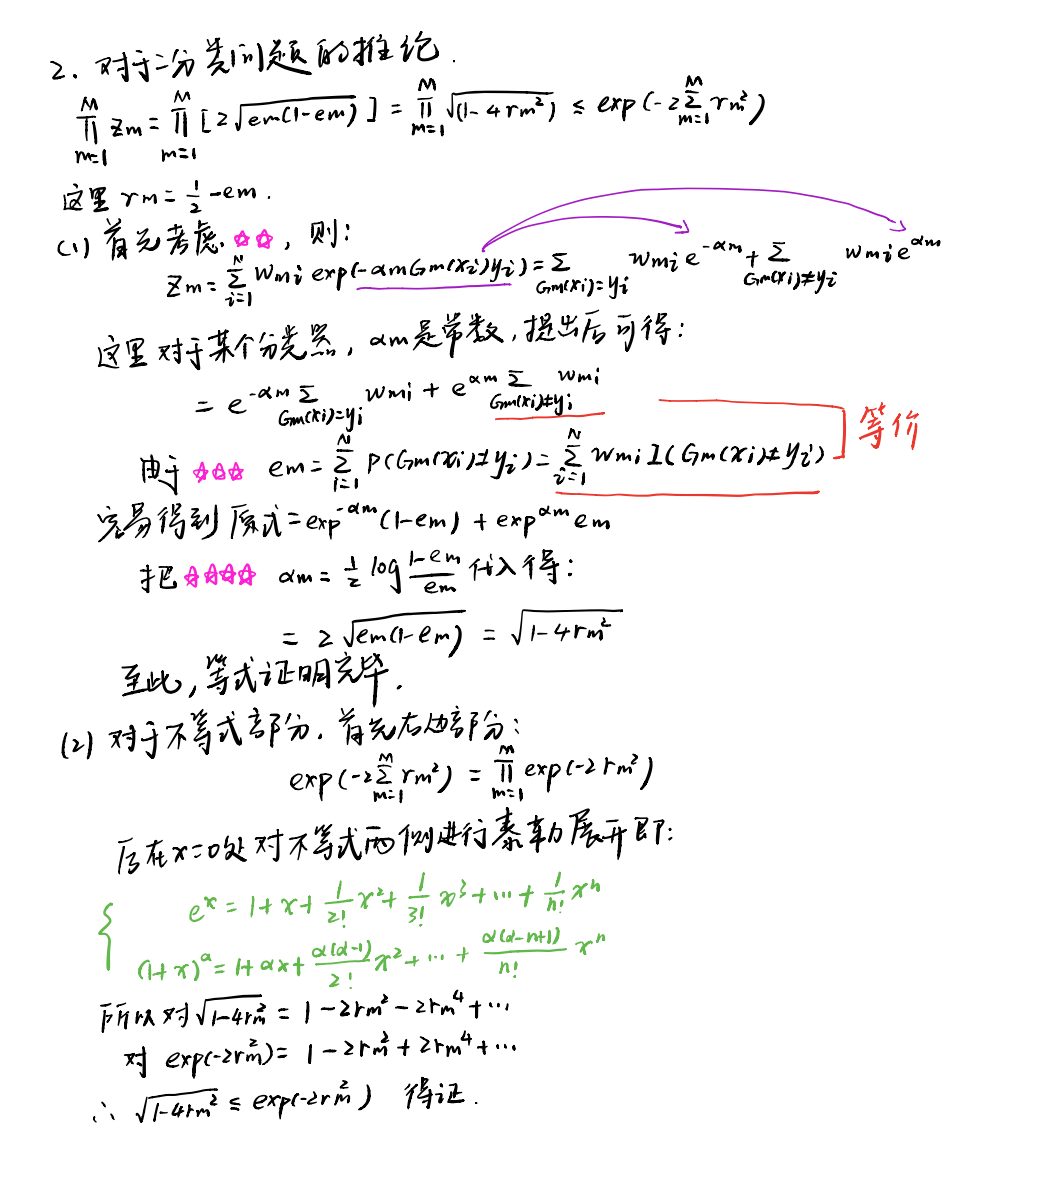 2. 对于二分类问题的推论.
∏_{m=1}^{M} Zm = ∏_{m=1}^{M} [2√(em(1-em))] = ∏_{m=1}^{M} √(1-4rm²) ≤ exp(-2∑_{m=1}^{M} rm²)
这里 rm = 1/2 - em.
(1) 首先考虑 ☆☆, 则:
Zm = ∑_{i=1}^{N} wmi exp(-αmGm(xi)yi) = ∑_{Gm(xi)=yi} wmi e^{-αm} + ∑_{Gm(xi)≠yi} wmi e^{αm}
这里对于某个分类器, αm是常数, 提出后可得:
= e^{-αm} ∑_{Gm(xi)=yi} wmi + e^{αm} ∑_{Gm(xi)≠yi} wmi
等价
由于 ☆☆☆ em = ∑_{i=1}^{N} P(Gm(xi)≠yi) = ∑_{i=1}^{N} wmi I(Gm(xi)≠yi)
容易得到原式 = exp^{-αm}(1-em) + exp^{αm} em
把 ☆☆☆☆ αm = 1/2 log (1-em)/em 代入得:
= 2√(em(1-em)) = √(1-4rm²)
至此, 等式证明完毕.
(2) 对于不等式部分. 首先右边部分:
exp(-2∑_{m=1}^{M} rm²) = ∏_{m=1}^{M} exp(-2rm²)
后在x=0处对不等式两侧进行泰勒展开即:
e^x = 1+x+ 1/2! x² + 1/3! x³ + ... + 1/n! x^n
(1+x)^α = 1+αx+ α(α-1)/2! x² + ... + α(α-n+1)/n! x^n
所以对 √(1-4rm²) = 1-2rm²-2rm⁴+...
对 exp(-2rm²) = 1-2rm²+2rm⁴+...
∴ √(1-4rm²) ≤ exp(-2rm²) 得证.